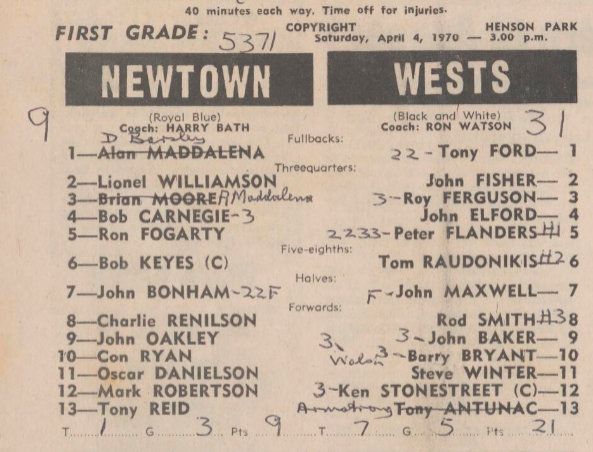 40 minutes each way. Time off for injuries.
FIRST GRADE: 5371 COPYRIGHT HENSON PARK
Saturday, April 4, 1970 — 3.00 p.m.
NEWTOWN WESTS
9 (Royal Blue) (Black and White) 31
Coach: HARRY BATH Coach: RON WATSON
D Barsley Fullbacks:
1—Alan MADDALENA 22 - Tony FORD— 1
Threequarters:
2—Lionel WILLIAMSON John FISHER— 2
3—Brian MOORE A Maddalena 3-Roy FERGUSON— 3
4—Bob CARNEGIE-3 John ELFORD— 4
5—Ron FOGARTY 2233-Peter FLANDERS #1 5
Five-eighths:
6—Bob KEYES (C) Tom RAUDONIKIS #2 6
Halves:
7—John BONHAM-22F F-John MAXWELL— 7
Forwards:
8—Charlie RENILSON Rod SMITH #3 8
9—John OAKLEY 3-John BAKER— 9
10—Con RYAN 3. Walon 3-Barry BRYANT—10
11—Oscar DANIELSON Steve WINTER—11
12—Mark ROBERTSON 3-Ken STONESTREET (C)—12
13—Tony REID Armstrong Tony ANTUNAC—13
T. 1 G. 3 Pts 9 T. 7 G. 5 Pts 21